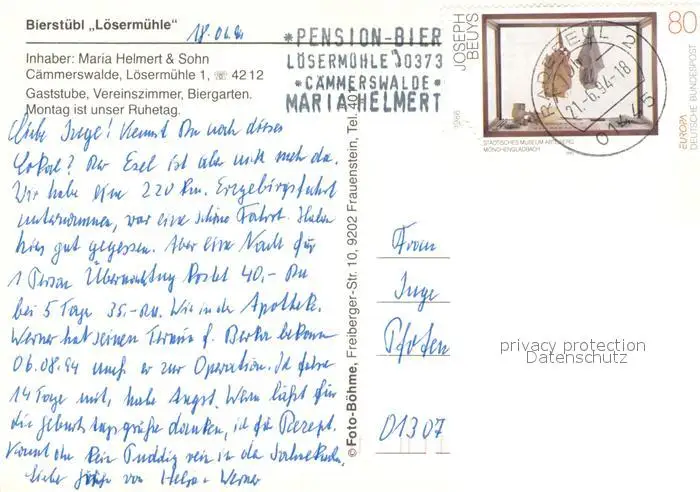 Bierstübl „Lösermühle“
18.06.94
Inhaber: Maria Helmert & Sohn
Cämmerswalde, Lösermühle 1, ☏ 42 12
Gaststube, Vereinszimmer, Biergarten.
Montag ist unser Ruhetag.
*PENSION-BIER
LÖSERMÜHLE 0373
*CÄMMERSWALDE*
MARIA HELMERT
JOSEPH
BEUYS
80
1988
STÄDTISCHES MUSEUM ABTEIBERG
MÖNCHENGLADBACH
EUROPA
DEUTSCHE BUNDESPOST
RADEBEUL 2
21.-6.94-18
01445
Liebe Inge! Kennst Du noch dieses
Lokal? Der Esel ist aber nicht mehr da.
Wir haben eine 220 km. Erzgebirgsfahrt
unternommen, war eine schöne Fahrt. Haben
hier gut gegessen. Aber eine Nacht für
1 Person Übernachtung kostet 40,- DM
bei 5 Tage 35,- DM. Wie in der Apotheke.
Werner hat seinen Termin f. Berka bekommen
06.08.94 muß er zur Operation. Ich fahre
14 Tage mit, habe Angst. Werner läßt für
die Geburtstagsgrüße danken, ich für Rezept.
Kommt denn kein Pudding rein in die
Liebe Grüße von Helga + Werner
© Foto-Böhme, Freiberger-Str. 10, 9202 Frauenstein, Tel. 401
Frau
Inge
Pfoten
01307
privacy protection
Datenschutz